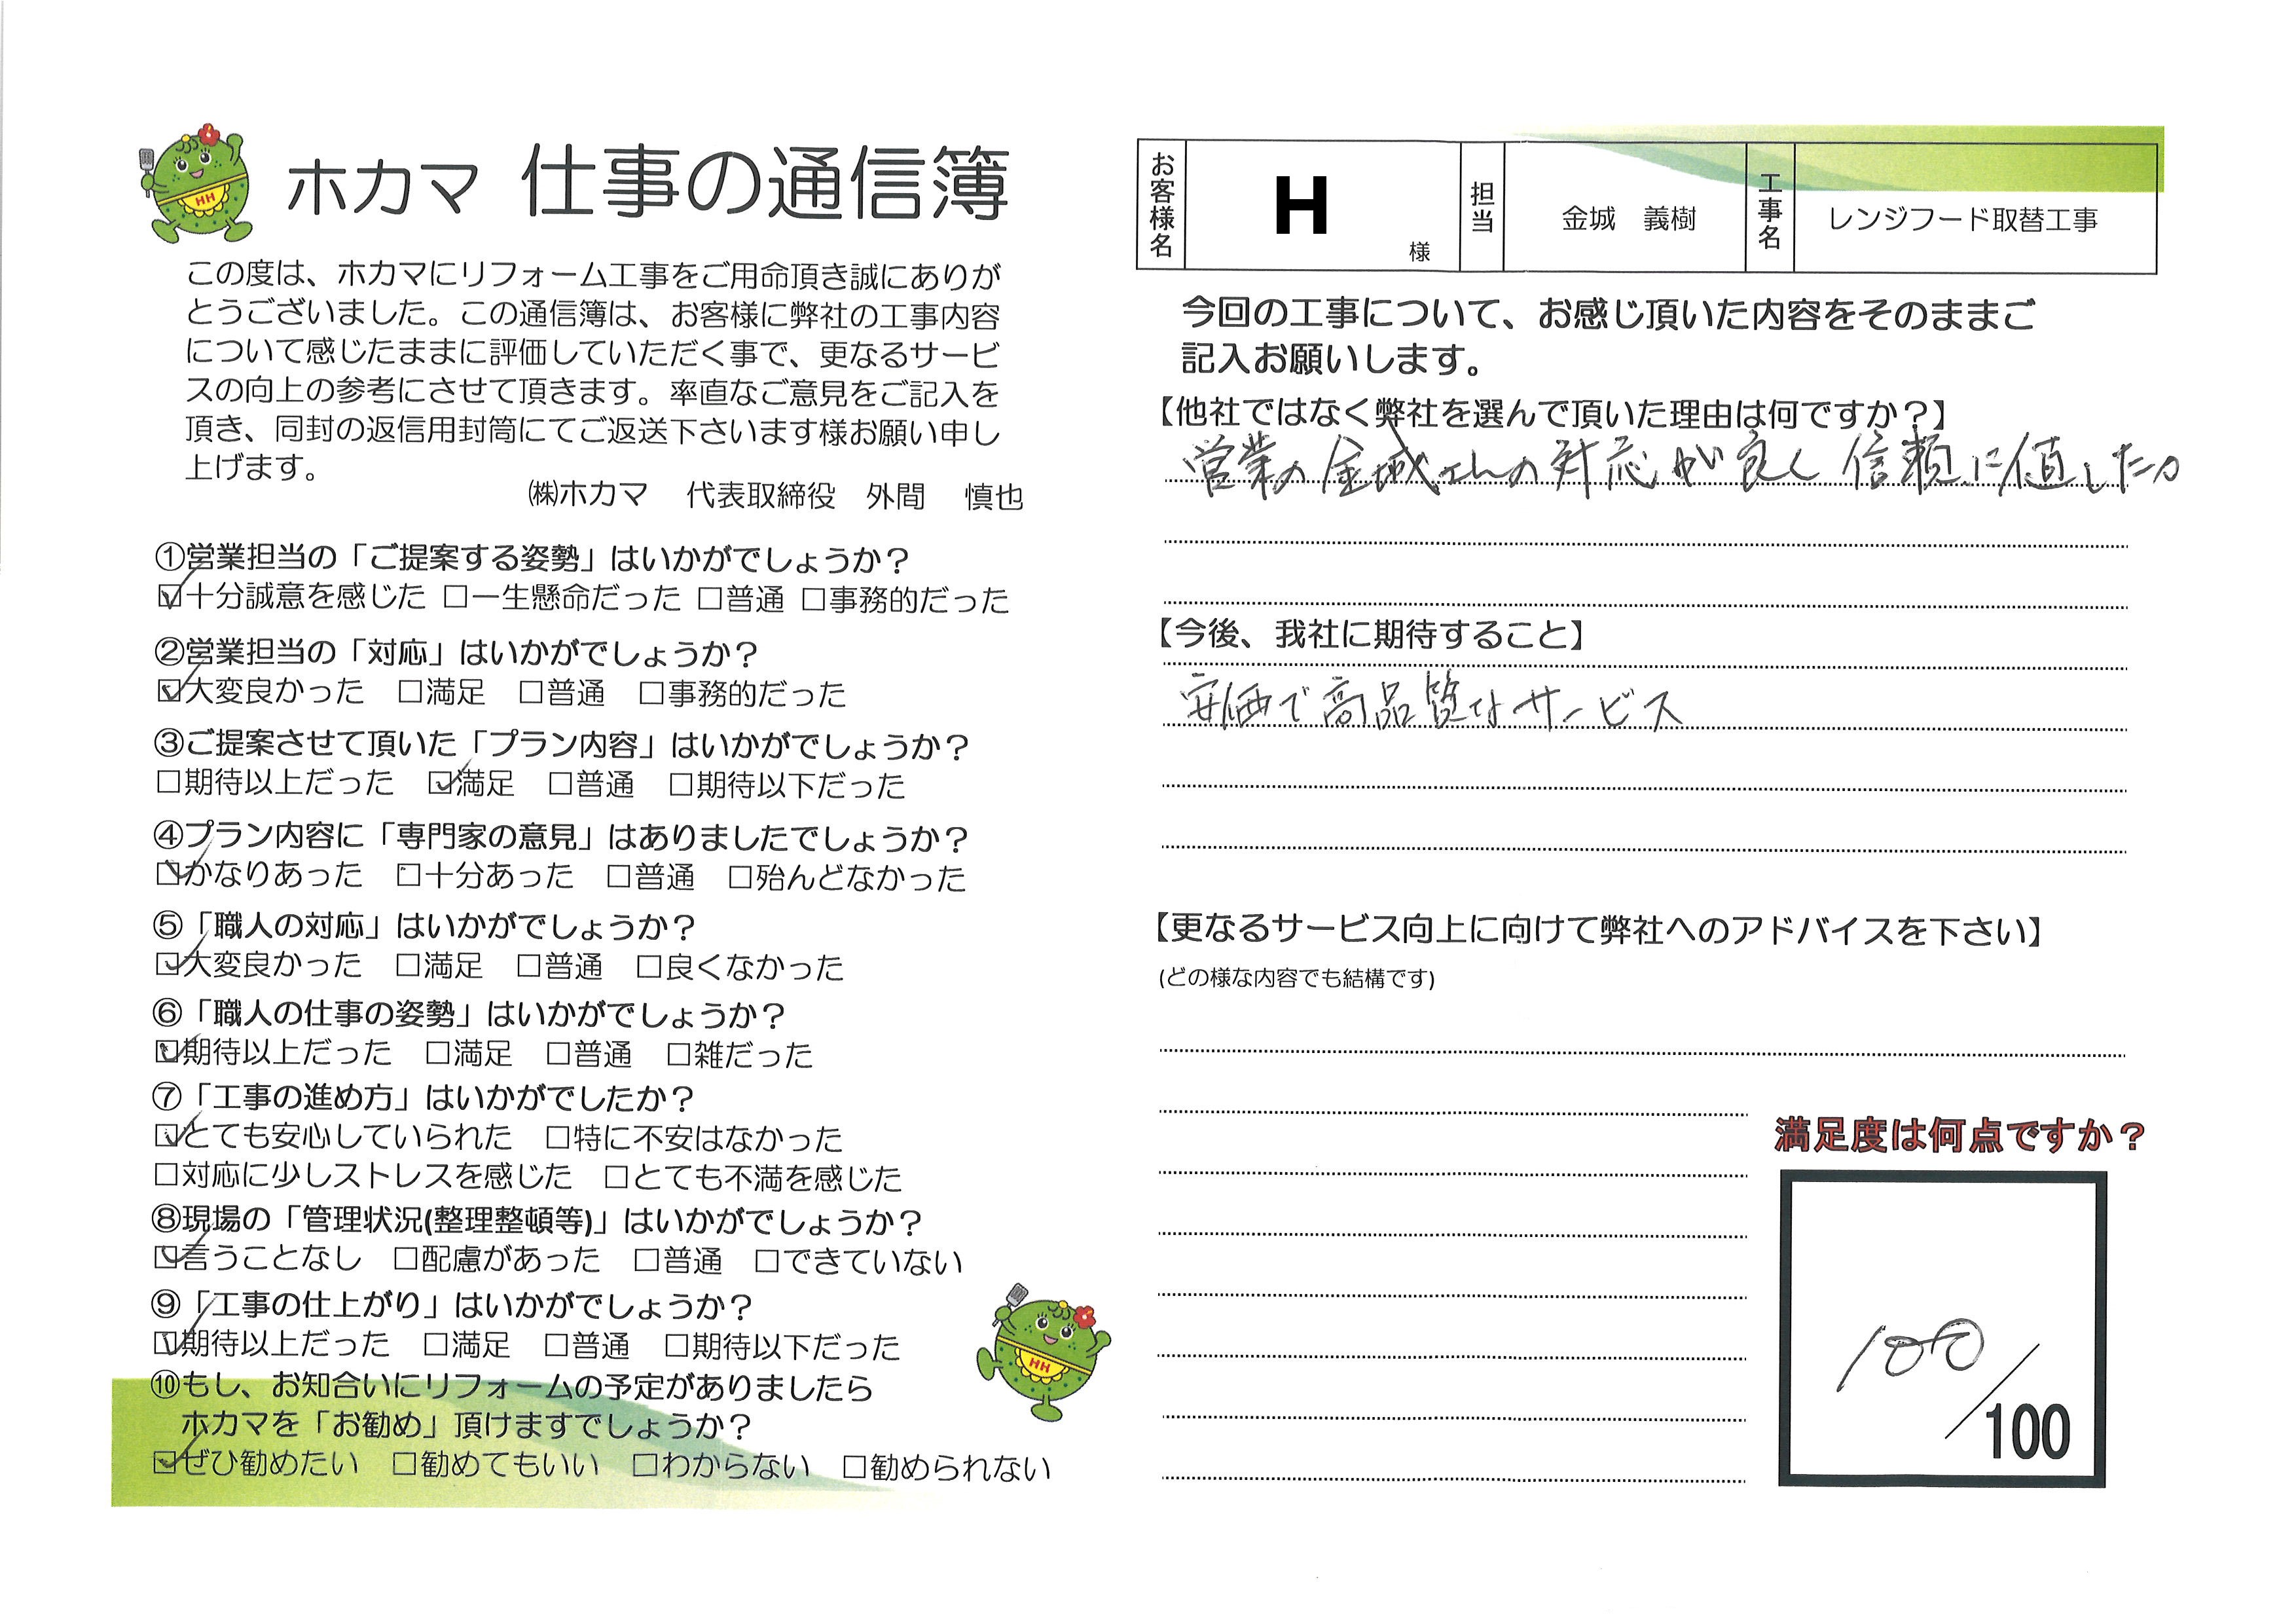 ホカマ 仕事の通信簿
この度は、ホカマにリフォーム工事をご用命頂き誠にありが
とうございました。この通信簿は、お客様に弊社の工事内容
について感じたままに評価していただく事で、更なるサービ
スの向上の参考にさせて頂きます。率直なご意見をご記入を
頂き、同封の返信用封筒にてご返送下さいます様お願い申し
上げます。
㈱ホカマ 代表取締役 外間 慎也
①営業担当の「ご提案する姿勢」はいかがでしょうか？
☑十分誠意を感じた □一生懸命だった □普通 □事務的だった
②営業担当の「対応」はいかがでしょうか？
☑大変良かった □満足 □普通 □事務的だった
③ご提案させて頂いた「プラン内容」はいかがでしょうか？
□期待以上だった ☑満足 □普通 □期待以下だった
④プラン内容に「専門家の意見」はありましたでしょうか？
☑かなりあった □十分あった □普通 □殆んどなかった
⑤「職人の対応」はいかがでしょうか？
☑大変良かった □満足 □普通 □良くなかった
⑥「職人の仕事の姿勢」はいかがでしょうか？
☑期待以上だった □満足 □普通 □雑だった
⑦「工事の進め方」はいかがでしたか？
☑とても安心していられた □特に不安はなかった
□対応に少しストレスを感じた □とても不満を感じた
⑧現場の「管理状況(整理整頓等)」はいかがでしょうか？
☑言うことなし □配慮があった □普通 □できていない
⑨「工事の仕上がり」はいかがでしょうか？
☑期待以上だった □満足 □普通 □期待以下だった
⑩もし、お知合いにリフォームの予定がありましたら
ホカマを「お勧め」頂けますでしょうか？
☑ぜひ勧めたい □勧めてもいい □わからない □勧められない
HH
HH
お客様名 H 様 担当 金城 義樹 工事名 レンジフード取替工事
今回の工事について、お感じ頂いた内容をそのままご
記入お願いします。
【他社ではなく弊社を選んで頂いた理由は何ですか？】
営業の金城さんの対応が良く信頼に値した為
【今後、我社に期待すること】
安価で高品質なサービス
【更なるサービス向上に向けて弊社へのアドバイスを下さい】
(どの様な内容でも結構です)
満足度は何点ですか？
100/100